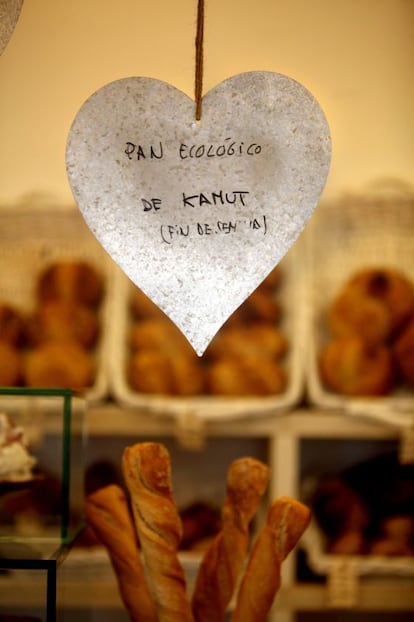 PAN ECOLÓGICO
DE KAMUT
(FIN DE